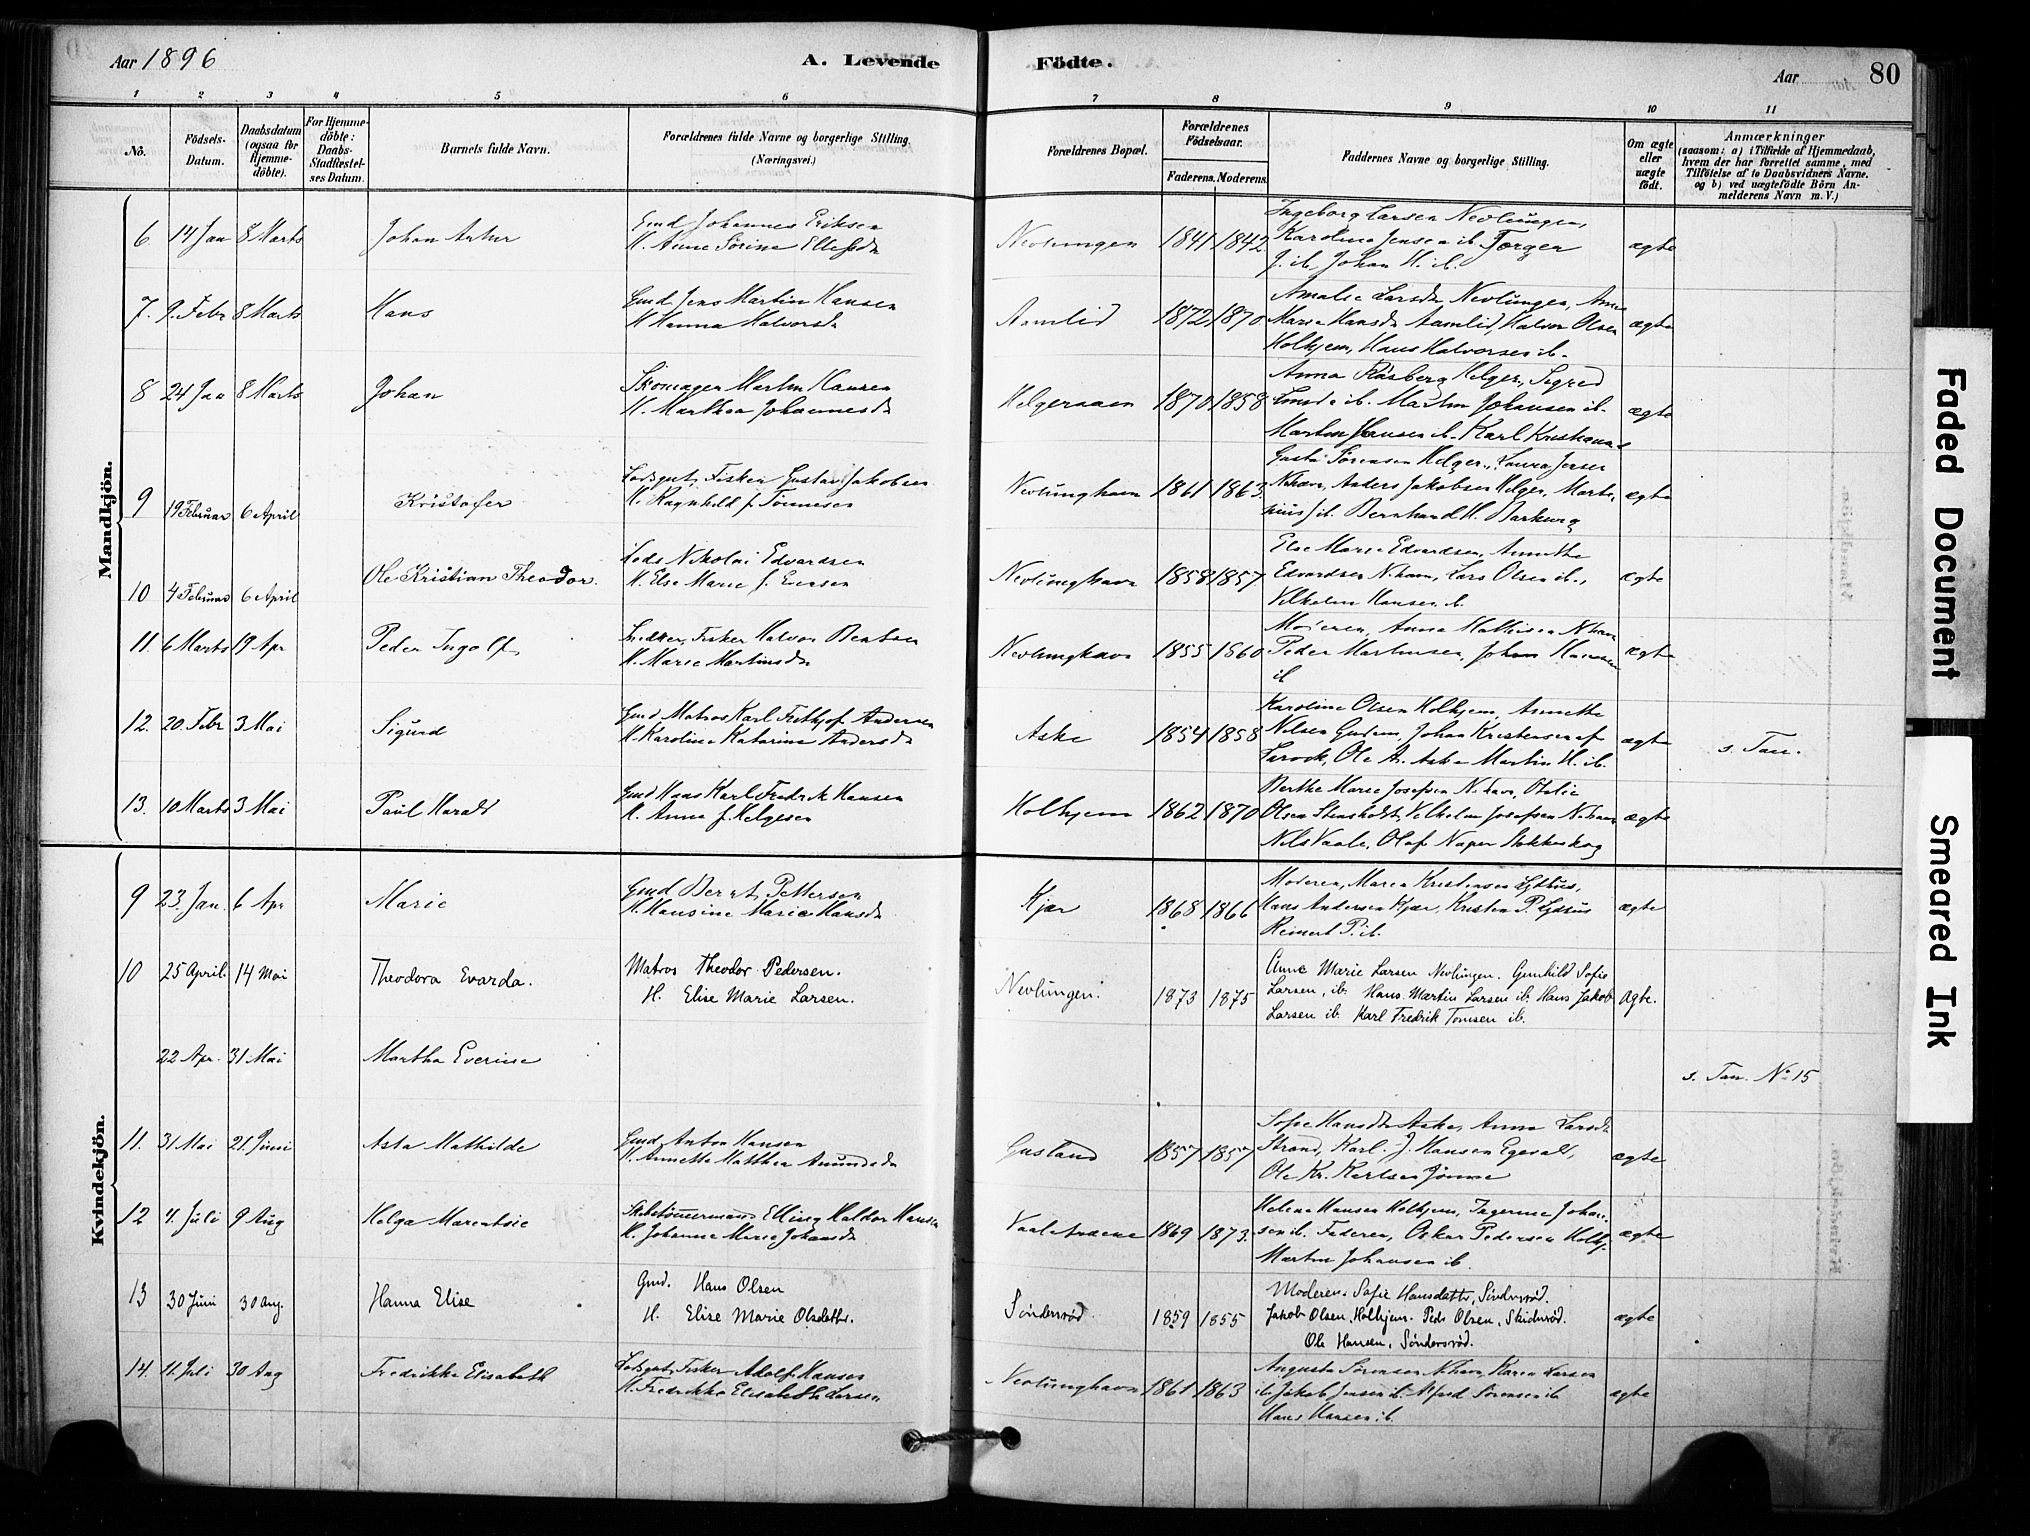 Aar 1896
A. Levende
Födte.
Aar
80
1 2 3 4 5 6 7 8 9 10 11
No.
Födsels-
Datum.
Daabsdatum
(ogsaa for
Hjemme-
döbte).
For Hjemme-
döbte:
Daabs-
Stadfæstel-
ses Datum.
Barnets fulde Navn.
Forældrenes fulde Navne og borgerlige Stilling.
(Næringsvei.)
Forældrenes Bopæl.
Forældrenes
Födselsaar.
Faderens. Moderens.
Faddernes Navne og borgerlige Stilling.
Om ægte
eller
uægte
født.
Anmærkninger
(saasom: a) i Tilfælde af Hjemmedaab,
hvem der har forrettet samme, med
Tilföielse af to Daabsvidners Navne.
og b) ved uægtefödte Börn An-
melderens Navn m. V.)
Mandkjön.
6. 14 Jan 8 Marts Johan Artur
Gmd Johannes Eriksen
H. Anne Sörine Ellefsdr
Nevlungen 1841 1842
Ingeborg Larsen Nevlungen,
Karoline Jensen ib. Törger
J. ib, Johan H. ib.
ægte
7. 9. Febr 8 Marts Hans
Gmd Jens Martin Hansen
H Hanna Halvorsdr
Aamlid 1872 1870
Amalie Larsdr Nevlungen, Anne
Marie Hansdr Aamlid, Halvor Olsen
Holhjem, Hans Halvorsen ib.
ægte
8 24 Jan 8 Marts Johan
Skomager Martin Hansen
H. Marthea Johannesdr
Helgeroaen 1870 1858
Martin Johansen ib.
Martin Hansen ib. Karl
ægte
9 19 Februar 6 April Kristofer
Lodsgut, Fisker Gustav Jakobsen
H. Ragnhild f. Tönnesen
Nevlunghavn 1861 1863
Sörensen Helger., Laura Jensen
N.havn, Anders Jakobsen Helger, Mart-
inius J. ib. Bernhard H. Barkevig
ægte
10 4 Februar 6 April Ole Kristian Theodor
Lods Nikolai Edvardsen
H. Else Marie f. Evensen
Nevlunghavn 1858 1857
Else Marie Edvardsen, Annethe
Edvardsen N.havn, Lars Olsen ib.,
Vilhelm Hansen ib.
ægte
11 6 Marts 19 Apr Peder Ingolf
Fisker Halvor Bentsen
H. Marie Martinsdr
Nevlunghavn 1855 1860
Moderen, Anna Mathisen N.havn
Peder Martinsen, Johan Hansen
ib
ægte
12. 20. Febr 3 Mai Sigurd
Gmd Matros Karl Frithjof Andersen
H. Karoline Katarina Andersdr
Aske 1854 1858
Karoline Olsen Holhjem, Annethe
Nilsen Gusland, Johan Kristensen af
Larvik, Ole A. Aske Martin H. ib.
ægte s. Tan.
13. 10 Marts 3 Mai Paul Harald
Gmd Hans Karl Fredrik Hansen
H. Anna f. Helgesen
Holhjem 1862 1870
Berthe Marie Josefsen N.havn, Otelie
Olsen Stensholdt, Vilhelm Josefsen N.havn
Nils Vaale, Olaf
ægte
Kvindekjön.
9 23. Jan. 6 Apr Marie
Gmd Bernt Pettersen
H. Hansine Marie Hansdr
Kjær 1868 1866
Moderen, Maren Kristensen
Hans Andersen Kjær, Kristen P.
Reinert P. ib.
ægte
10 25 April. 14 Mai Theodora Evarda.
Matros Theodor Pedersen.
H. Elise Marie Larsen.
Nevlungen. 1873 1875
Anne Marie Larsen Nevlungen. Gunhild Sofie
Larsen, ib. Hans Martin Larsen ib. Hans Jakob
Larsen ib. Karl Fredrik Tomsen ib.
Ægte.
22 Apr. 31 Mai Martha Everine
s. Tan. No 15
11. 31 Mai 21. Juni Asta Mathilde
Gmd Anton Hansen
H. Annette Matthea Amundsdr
Gusland 1857 1857
Sofie Hansdr Aske, Anna Larsdr
Strand, Karl J. Hansen
Ole Kr. Karlsen
ægte
12 4. Juli 9 Aug Helga Marentsie
Skibstömmermand Elling Haldor Hansen
H. Johanne Marie Johansdr
1869 1873.
Helene Hansen Holhjem, Ingerine Johan-
sen ib. Faderen, Oskar Pedersen Holhj.
Martin Johansen ib.
ægte
13 30 Juni 30 Aug. Hanna Elise
Gmd. Hans Olsen
H. Elise Marie Olsdatter.
Söndersröd. 1859 1855
Moderen. Sofie Hansdatter, Söndersröd.
Jakob Olsen, Holhjem. Peder Olsen, Skidsröd.
Ole Hansen, Söndersröd.
ægte
14. 11. Juli 30 Aug Fredrikke Elisabeth
Lodsgut, Fisker Adolf Hansen
H. Fredrikke Elisabeth Larsen
Nevlunghavn 1861 1863
Augusta Sörensen N.havn, Karen Larsen
ib. Jakob Jensen ib. Alfred Sörensen ib
Hans Hansen ib.
ægte
Faded Document
Smeared Ink